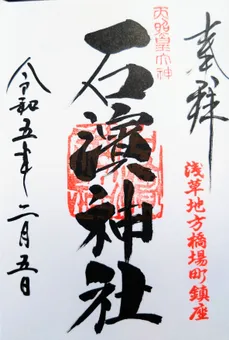 奉拝
浅草地方橋場町鎮座
天照皇大神
石濱神社
令和五年二月五日